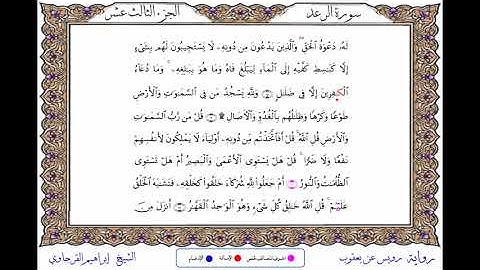 سورة الرعد
الجزء الثالث عشر
لَهُۥ دَعْوَةُ ٱلْحَقِّ ۖ وَٱلَّذِينَ يَدْعُونَ مِن دُونِهِۦ لَا يَسْتَجِيبُونَ لَهُم بِشَىْءٍ
إِلَّا كَبَٰسِطِ كَفَّيْهِ إِلَى ٱلْمَآءِ لِيَبْلُغَ فَاهُ وَمَا هُوَ بِبَٰلِغِهِۦ ۚ وَمَا دُعَآءُ
ٱلْكَٰفِرِينَ إِلَّا فِى ضَلَٰلٍ وَلِلَّهِ يَسْجُدُ مَن فِى ٱلسَّمَٰوَٰتِ وَٱلْأَرْضِ
طَوْعًا وَكَرْهًا وَظِلَٰلُهُم بِٱلْغُدُوِّ وَٱلْأَصَالِ ۩ قُلْ مَن رَّبُّ ٱلسَّمَٰوَٰتِ
وَٱلْأَرْضِ قُلِ ٱللَّهُ ۚ قُلْ أَفَٱتَّخَذْتُم مِّن دُونِهِۦٓ أَوْلِيَآءَ لَا يَمْلِكُونَ لِأَنفُسِهِمْ
نَفْعًا وَلَا ضَرًّا ۚ قُلْ هَلْ يَسْتَوِى ٱلْأَعْمَىٰ وَٱلْبَصِيرُ أَمْ هَلْ تَسْتَوِى
ٱلظُّلُمَٰتُ وَٱلنُّورُ أَمْ جَعَلُوا۟ لِلَّهِ شُرَكَآءَ خَلَقُوا۟ كَخَلْقِهِۦ فَتَشَٰبَهَ ٱلْخَلْقُ
عَلَيْهِمْ ۚ قُلِ ٱللَّهُ خَٰلِقُ كُلِّ شَىْءٍ وَهُوَ ٱلْوَٰحِدُ ٱلْقَهَّٰرُ أَنزَلَ مِنَ
رواية رويس عن يعقوب
الإمالة
الإدغام
الشيخ إبراهيم القرحاوي